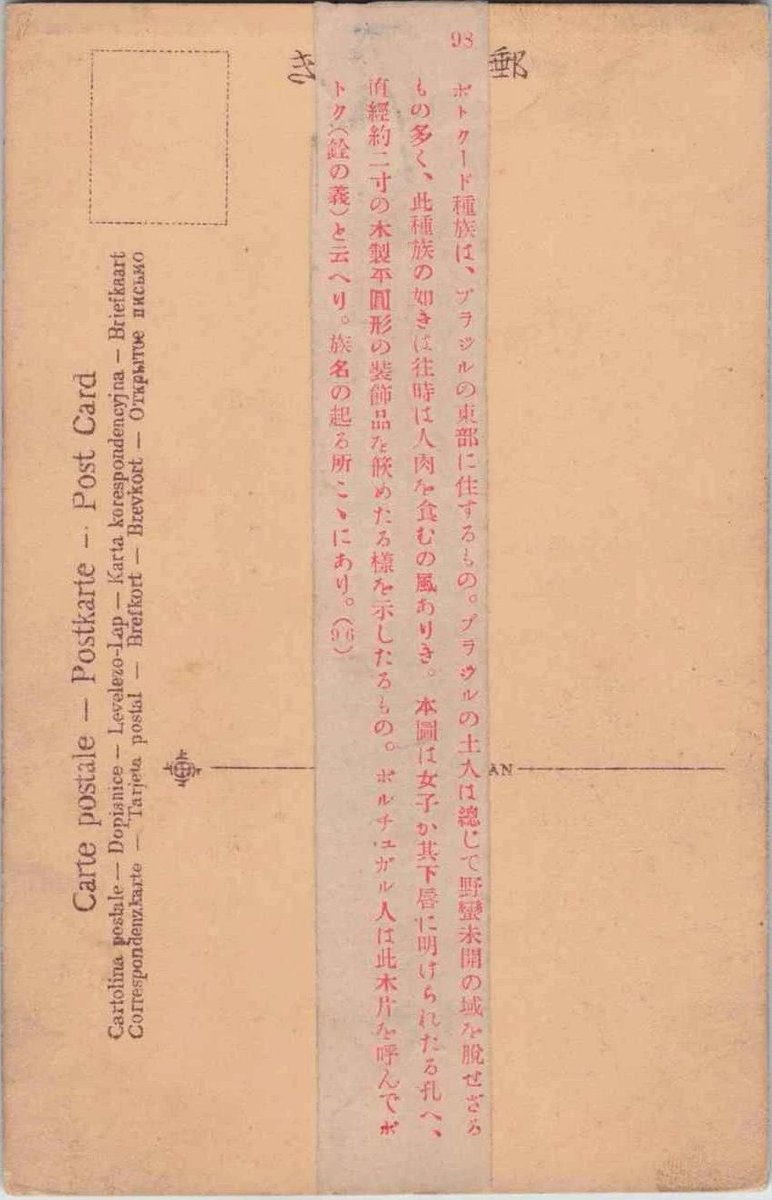 98
ボトクード種族は、ブラジルの東部に住するもの。ブラジルの土人は總じて野蠻未開の域を脫せざる
もの多く、此種族の如きは往時は人肉を食むの風ありき。本圖は女子か其下唇に明けられたる孔へ、
直經約二寸の木製平圓形の裝飾品を篏めたる樣を示したるもの。ポルチユガル人は此木片を呼んでボ
トク(銓の義)と云へり。族名の起る所こゝにあり。(96)
郵
き
AN
Carte postale — Postkarte — Post Card
Cartolina postale — Dopisnice — Levelezo-Lap — Karta korespondencyjna — Briefkaart
Correspondenzkarte — Tarjeta postal — Brefkort — Brevkort — Открытое письмо